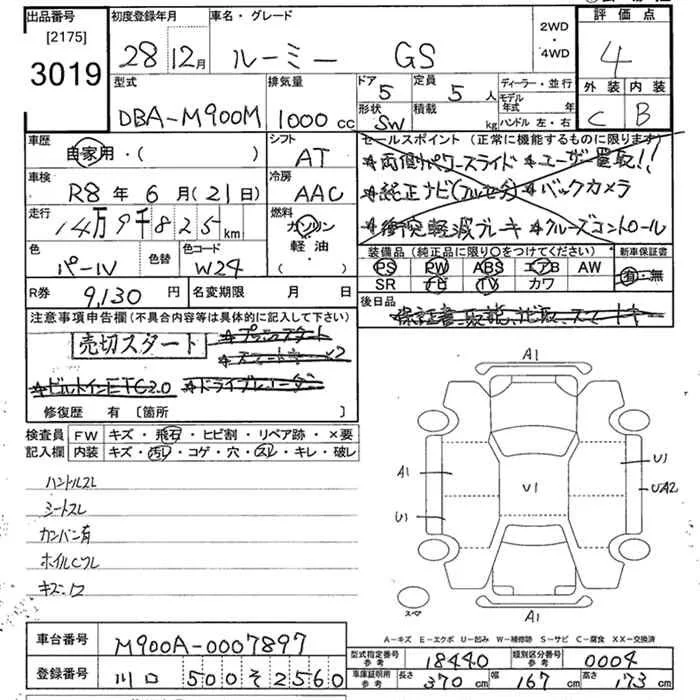 出品番号 初度登録年月 車名・グレード 2WD・4WD 評価点
[2175]
3019 28年 12月 ルーミー GS 4
型式 排気量 ドア 定員 ディーラー・並行 外装 内装
DBA-M900M 1000cc 5 5人 モデル年式 年 C B
形状 積載 kg ハンドル 左・右
SW
車歴 自家用・( ) シフト AT
セールスポイント (正常に機能するものに限ります)
★両側パワースライド ★ユーザー買取!!
車検 R8年 6月(21日) 冷房 AAC
★純正ナビ(フルセグ) ★バックカメラ
走行 14万9千825km 燃料 ガソリン・軽油・( )
★衝突軽減ブレーキ ★クルーズコントロール
色 パール 色替 色コード W24
装備品(純正品に限り○をつけてください) 新車保証書
PS PW ABS エアB AW 有・無
SR ナビ TV カワ
R券 9,130円 名変期限 月 日
後日品
保証書、取説、ナビ取、スマートキー
注意事項申告欄(不具合内容等は具体的に記入して下さい)
売切スタート ★プッシュスタート
★スマートキー×2
★ビルトインETC2.0 ★ドライブレコーダー
修復歴 有 [箇所 ]
検査員記入欄 FW キズ・飛石・ヒビ割・リペア跡・×要
内装 キズ・汚レ・コゲ・穴・スレ・キレ・破レ
ハンドルスレ
シートスレ
カンバン有
ホイルCフレ
A1
A1
U1
U1
U1
UA2
スペア
A1
A-キズ E-エクボ U-凹み W-補修跡 S-サビ C-腐食 XX-交換済
車台番号 M900A-0007897
型式指定番号 参考 18440 類別区分番号 参考 0004
登録番号 川口 500 そ 2560
車庫証明用 参考 長さ 370cm 幅 167cm 高さ 173cm